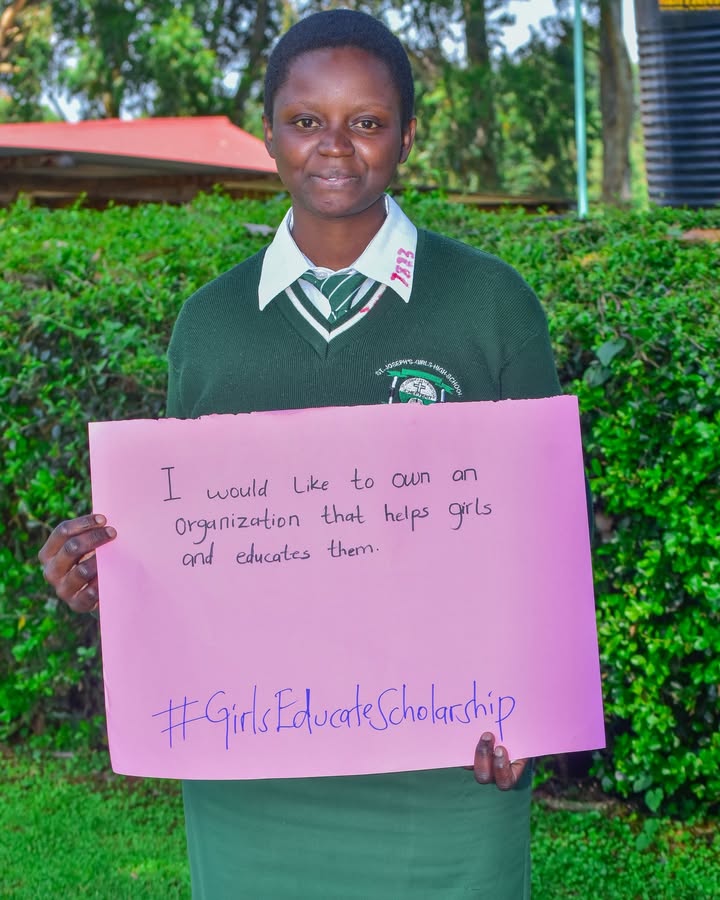 7883
ST. JOSEPH'S GIRLS HIGH SCHOOL
I would like to own an
organization that helps girls
and educates them.
#GirlsEducateScholarship